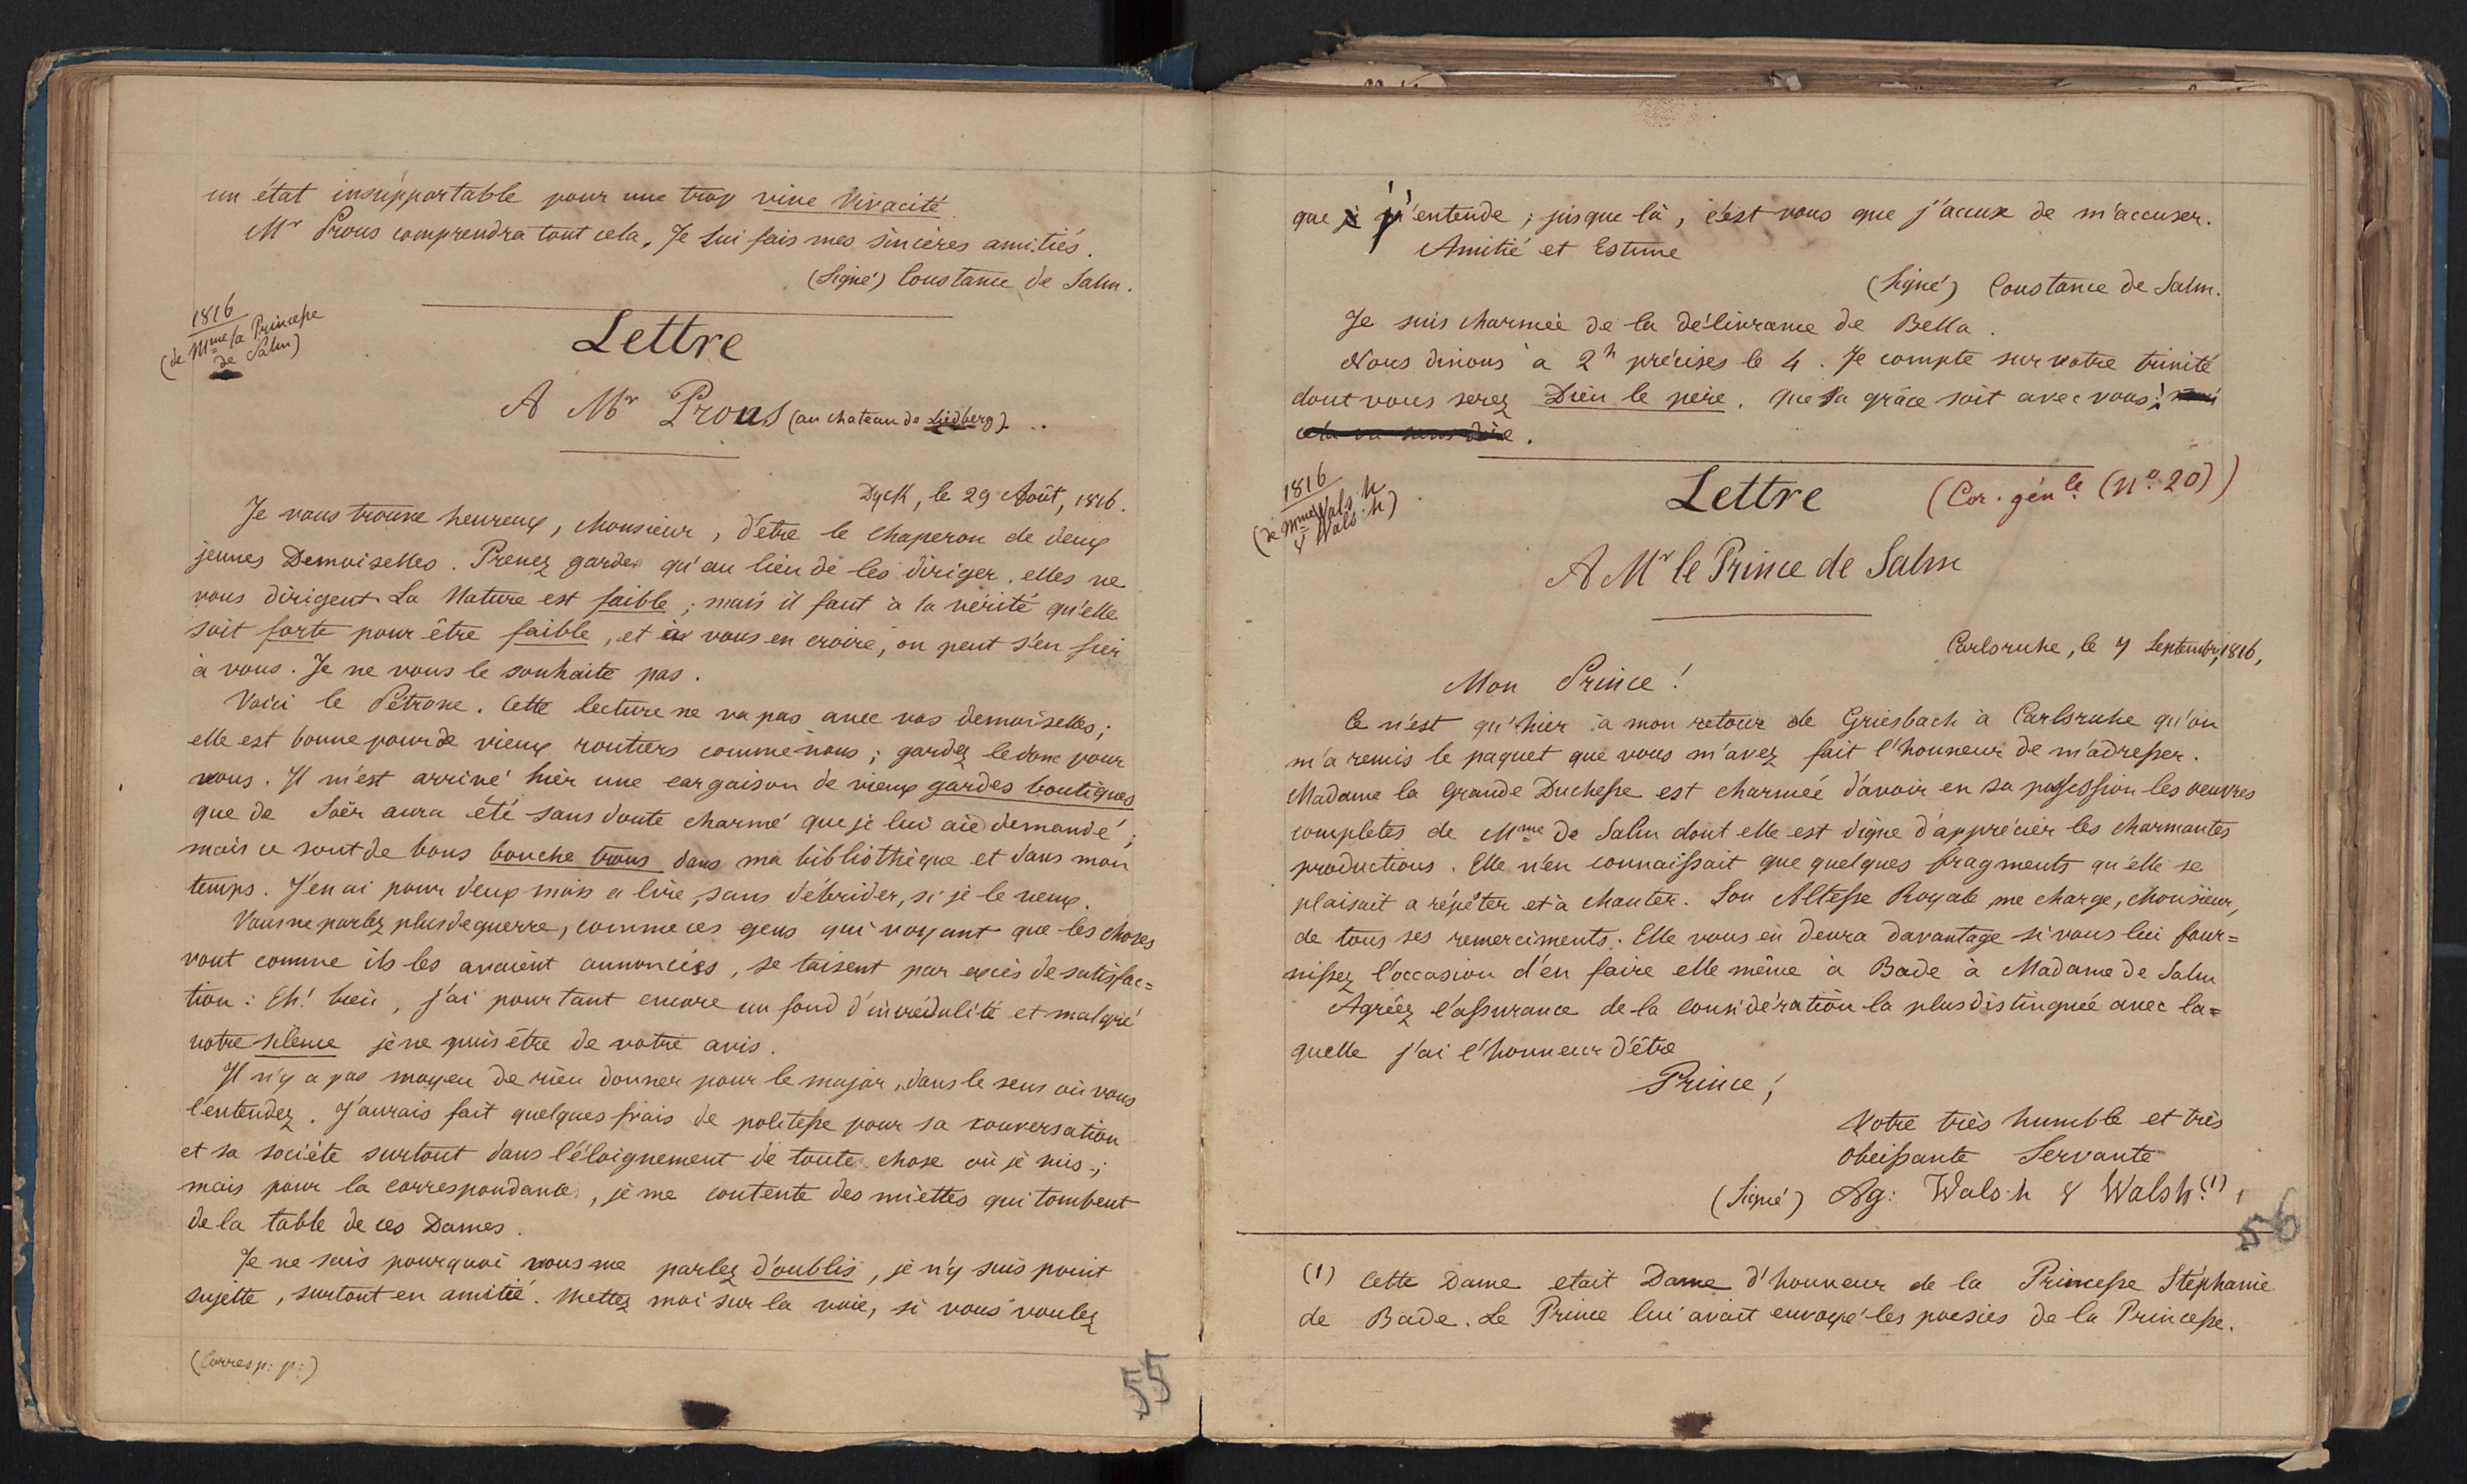 un état insupportable pour une trop vive vivacité.
Mr Prous comprendra tout cela. Je lui fais mes sincères amitiés.
(Signé) Constance de Salm.
1816
(de Mme la Princesse
de Salm)
Lettre
A Mr Prous (au chateau de Liedberg)
Dyck, le 29 Août, 1816.
Je vous trouve heureux, Monsieur, d'être le chaperon de deux
jeunes Demoiselles. Prenez garde qu'au lieu de les diriger, elles ne
vous dirigent. La Nature est faible ; mais il faut à la vérité qu'elle
soit forte pour être faible, et à vous en croire, on peut s'en fier
à vous. Je ne vous le souhaite pas.
Voici le Pétrone. Cette lecture ne va pas avec vos demoiselles ;
elle est bonne pour de vieux routiers comme nous ; gardez le donc pour
vous. Il m'est arrivé hier une cargaison de vieux gardes boutiques
que de Soër aura été sans doute charmé que je lui aie demandé ;
mais ce sont de bons bouche trous dans ma bibliothèque et dans mon
temps. J'en ai pour deux mois a lire, sans débrider, si je le veux.
Vous ne parlez plus de guerre, comme ces gens qui voyant que les choses
vont comme ils les avaient annoncées, se taisent par excès de satisfac=
tion : Eh! bien, j'ai pourtant encore un fond d'incrédulité et malgré
votre silence je ne puis être de votre avis.
Il n'y a pas moyen de rien donner pour le major, dans le sens où vous
l'entendez. J'aurais fait quelques frais de politesse pour sa conversation
et sa société surtout dans l'éloignement de toute chose où je suis ;
mais pour la correspondance, je me contente des miettes qui tombent
de la table de ces Dames.
Je ne sais pourquoi vous me parlez d'oublis, je n'y suis point
sujette, surtout en amitié. Mettez moi sur la voie, si vous voulez
(Corresp: p:)
55
que j'entende ; jusque là, c'est vous que j'accuse de m'accuser.
Amitié et Estime
(Signé) Constance de Salm.
Je suis charmée de la délivrance de Bella.
Nous dinons à 2h précises le 4. Je compte sur votre trinité
dont vous serez Dieu le père. Que sa grâce soit avec vous !
cela va sans dire.
1816
(de Mme Wals.h
& Wals.h)
Lettre
(Cor. génle (No 20))
A Mr le Prince de Salm
Carlsruhe, le 7 Septembre, 1816,
Mon Prince !
Ce n'est qu'hier à mon retour de Griesbach à Carlsruhe qu'on
m'a remis le paquet que vous m'avez fait l'honneur de m'adresser.
Madame la Grande Duchesse est charmée d'avoir en sa possession les oeuvres
completes de Mme de Salm dont elle est digne d'apprécier les charmantes
productions. Elle n'en connaissait que quelques fragments qu'elle se
plaisait a répéter et à chanter. Son Altesse Royale me charge, Monsieur,
de tous ses remerciments. Elle vous en devra davantage si vous lui four=
nissez l'occasion d'en faire elle même à Bade à Madame de Salm
Agréez l'assurance de la considération la plus distinguée avec la=
quelle j'ai l'honneur d'être
Prince,
Votre très humble et très
obeissante Servante
(Signé) Ag: Wals.h & Walsh (1)
56
(1) Cette Dame etait Dame d'honneur de la Princesse Stéphanie
de Bade. Le Prince lui avait envoyé les poesies de la Princesse.